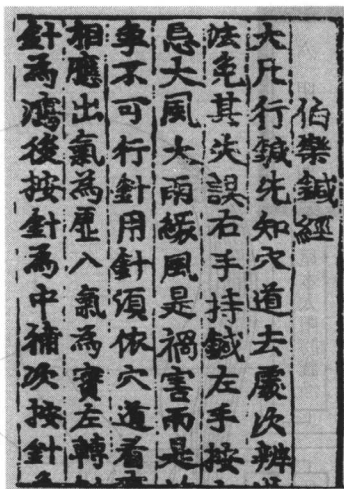 伯樂鍼經
大凡行鍼先知穴道去處次辨
法免其失誤右手持鍼左手按
忌大風大雨緣風是禍害雨是
事不可行針用針須依穴道看
相應出氣為虛入氣為實左轉
針為瀉後按針為中補次按針